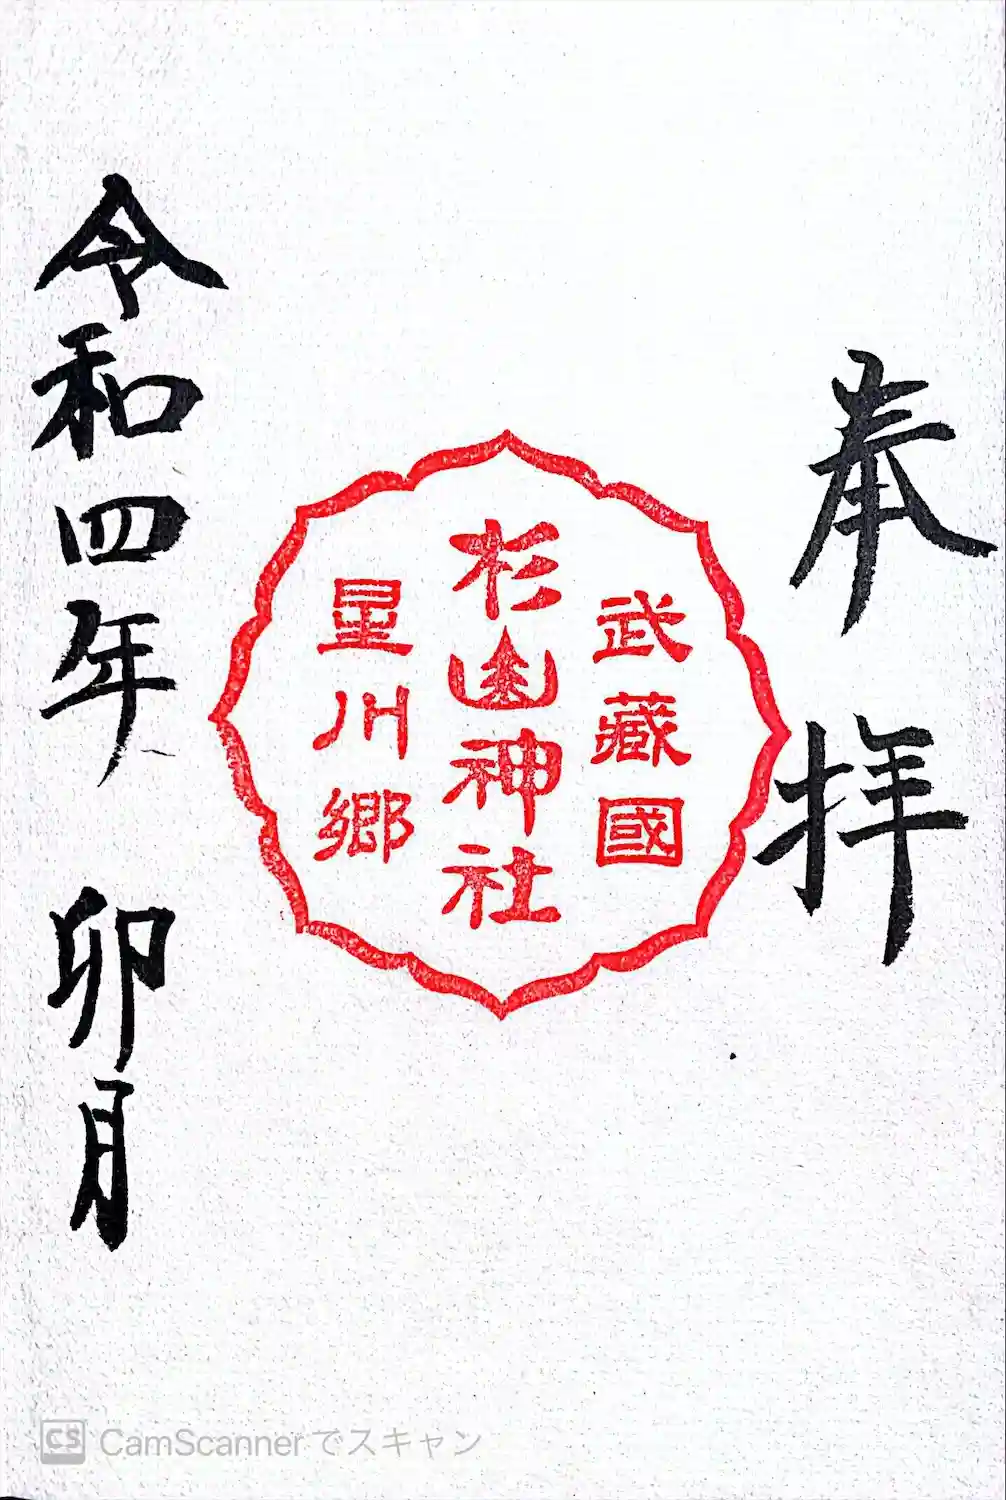 奉拝
武藏國
杉山神社
星川郷
令和四年 卯月
CS CamScannerでスキャン